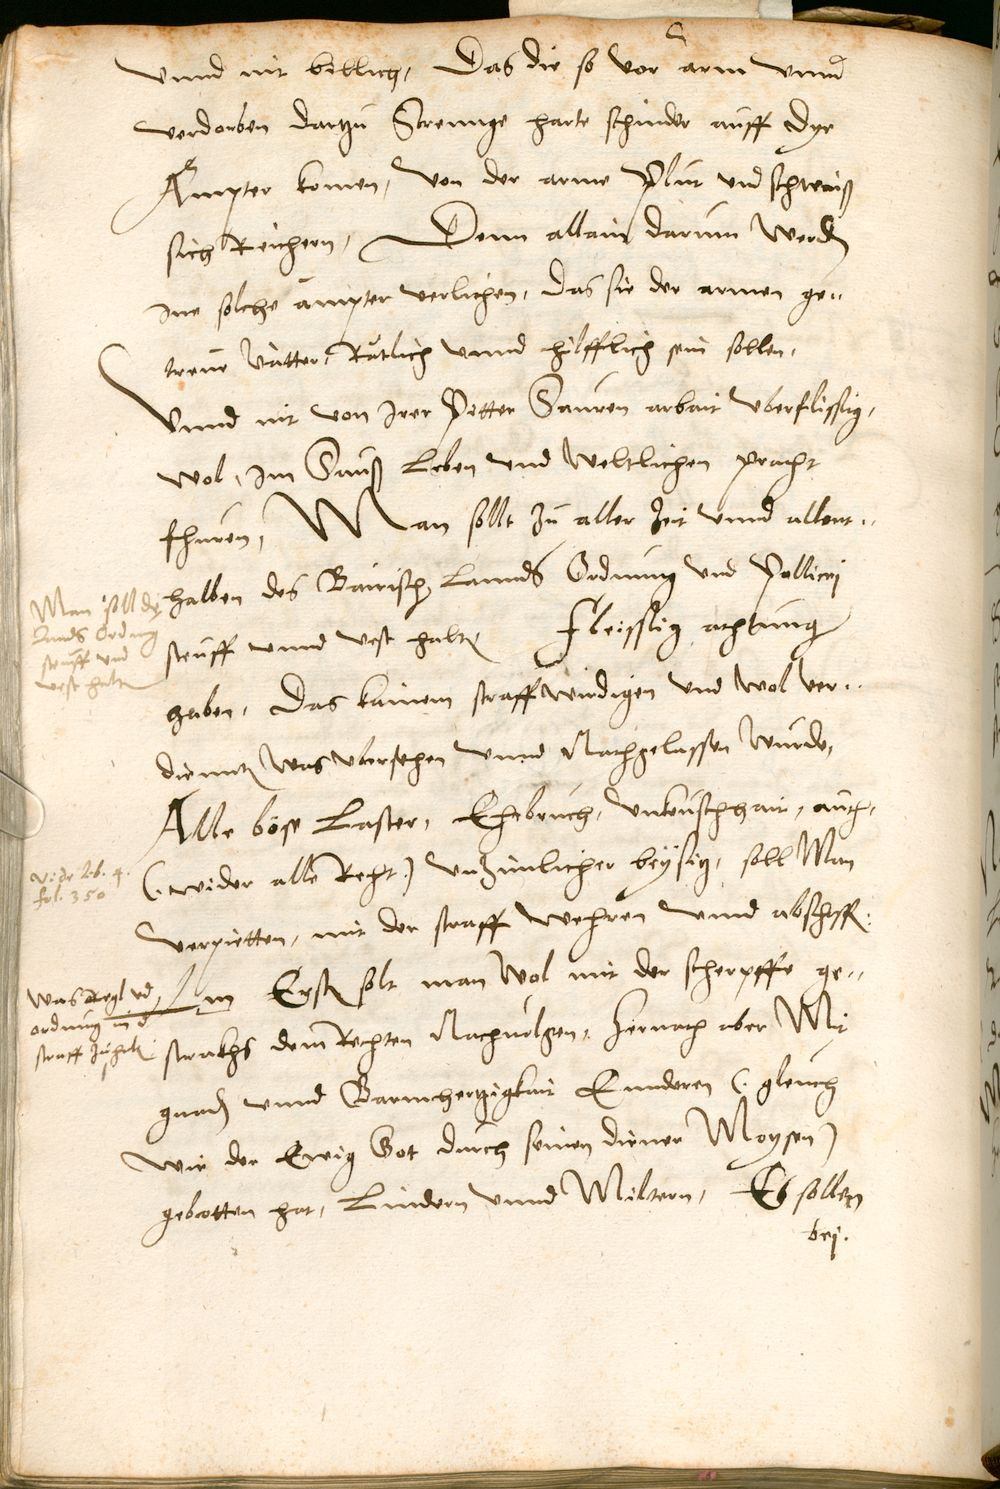 vnnd nit billich, Das die so vor arm vnnd
verdorben dartzu Strennge harte schinder auff dye
Ämpter komen, von der arme Plut vnd schwaiß
sich Reichern, Denn allain darum werden
Ine solche ämpter verlichen, Das sie der armen ge„
treue Vätter, Rätlich vnnd hilfflich sein sollen,
Vnnd nit von Irer Pitter Sauren arbait vberflissig,
wol, Im Sauß Leben vnd Weltlichen pracht
fhuren, Man sollt zu aller Zeit vnnd allent„
halben des Bairisch Lannds Ordnung vnd Pollicej
steuff vnnd vest halten Fleissig achtung
haben, Das kainem straffwirdigen vnd wol ver„
dienntn was vbersehen vnnd Nachgelassen wurde,
Alle böse Laster, Ehebruch, vnkeuschhait, auch,
(: wider alle Recht :) vnzimlicher beysiz, soll Man
verpietten, mit der straff wehren vnnd abschaff:
Im Ersten solt man wol mit der scherpffe ge„
strakhs dem Rechten Nachuolgen, Hernach aber Mit
gnaden vnnd Barmhertzigkait Enndren (: gleuch
wie der Ewig Got durch seinen diener Moysen)
gebotten hat, Lindern vnnd Miltern, Es sollen
bej.
Man soll dz
Lands Ordnung
steuff vnd
vest halten
vide Lib. 4.
fol. 350
Was Regl vnd
ordnung in d
straff zuhalten